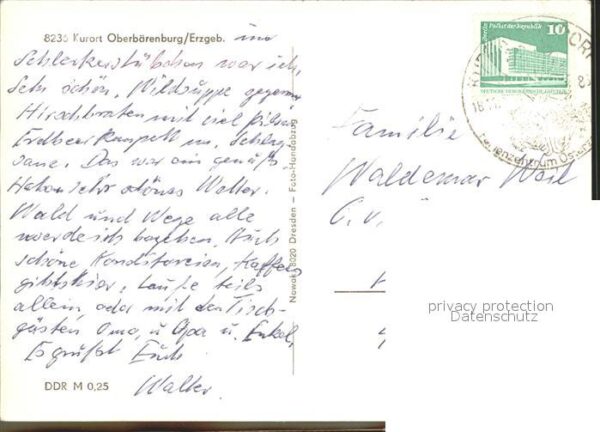 8236 Kurort Oberbärenburg/Erzgeb. im
Schleckerstübchen war ich,
Sehr schön, Wildsuppe gegessen
Hirschbraten mit viel Pilzen
Erdbeer Kompott m. Schlag-
sane. Das war ein
Haben sehr schönes Wetter.
Wald und Wege alle
werde ich begehen. Auch
schöne Konditoreien, Kaffees
gibts hier, Laufe teils
allein, oder mit den Tisch-
gästen Oma, u Opa u. Enkel,
Es grüßt Euch
Walter.
DDR M 0,25
Nowak, 8020 Dresden – Foto-Handabzug
Berlin, Palast der Republik
10
DEUTSCHE DEMOKRATISCHE REPUBLIK
Familie
Waldemar Weil
privacy protection
Datenschutz